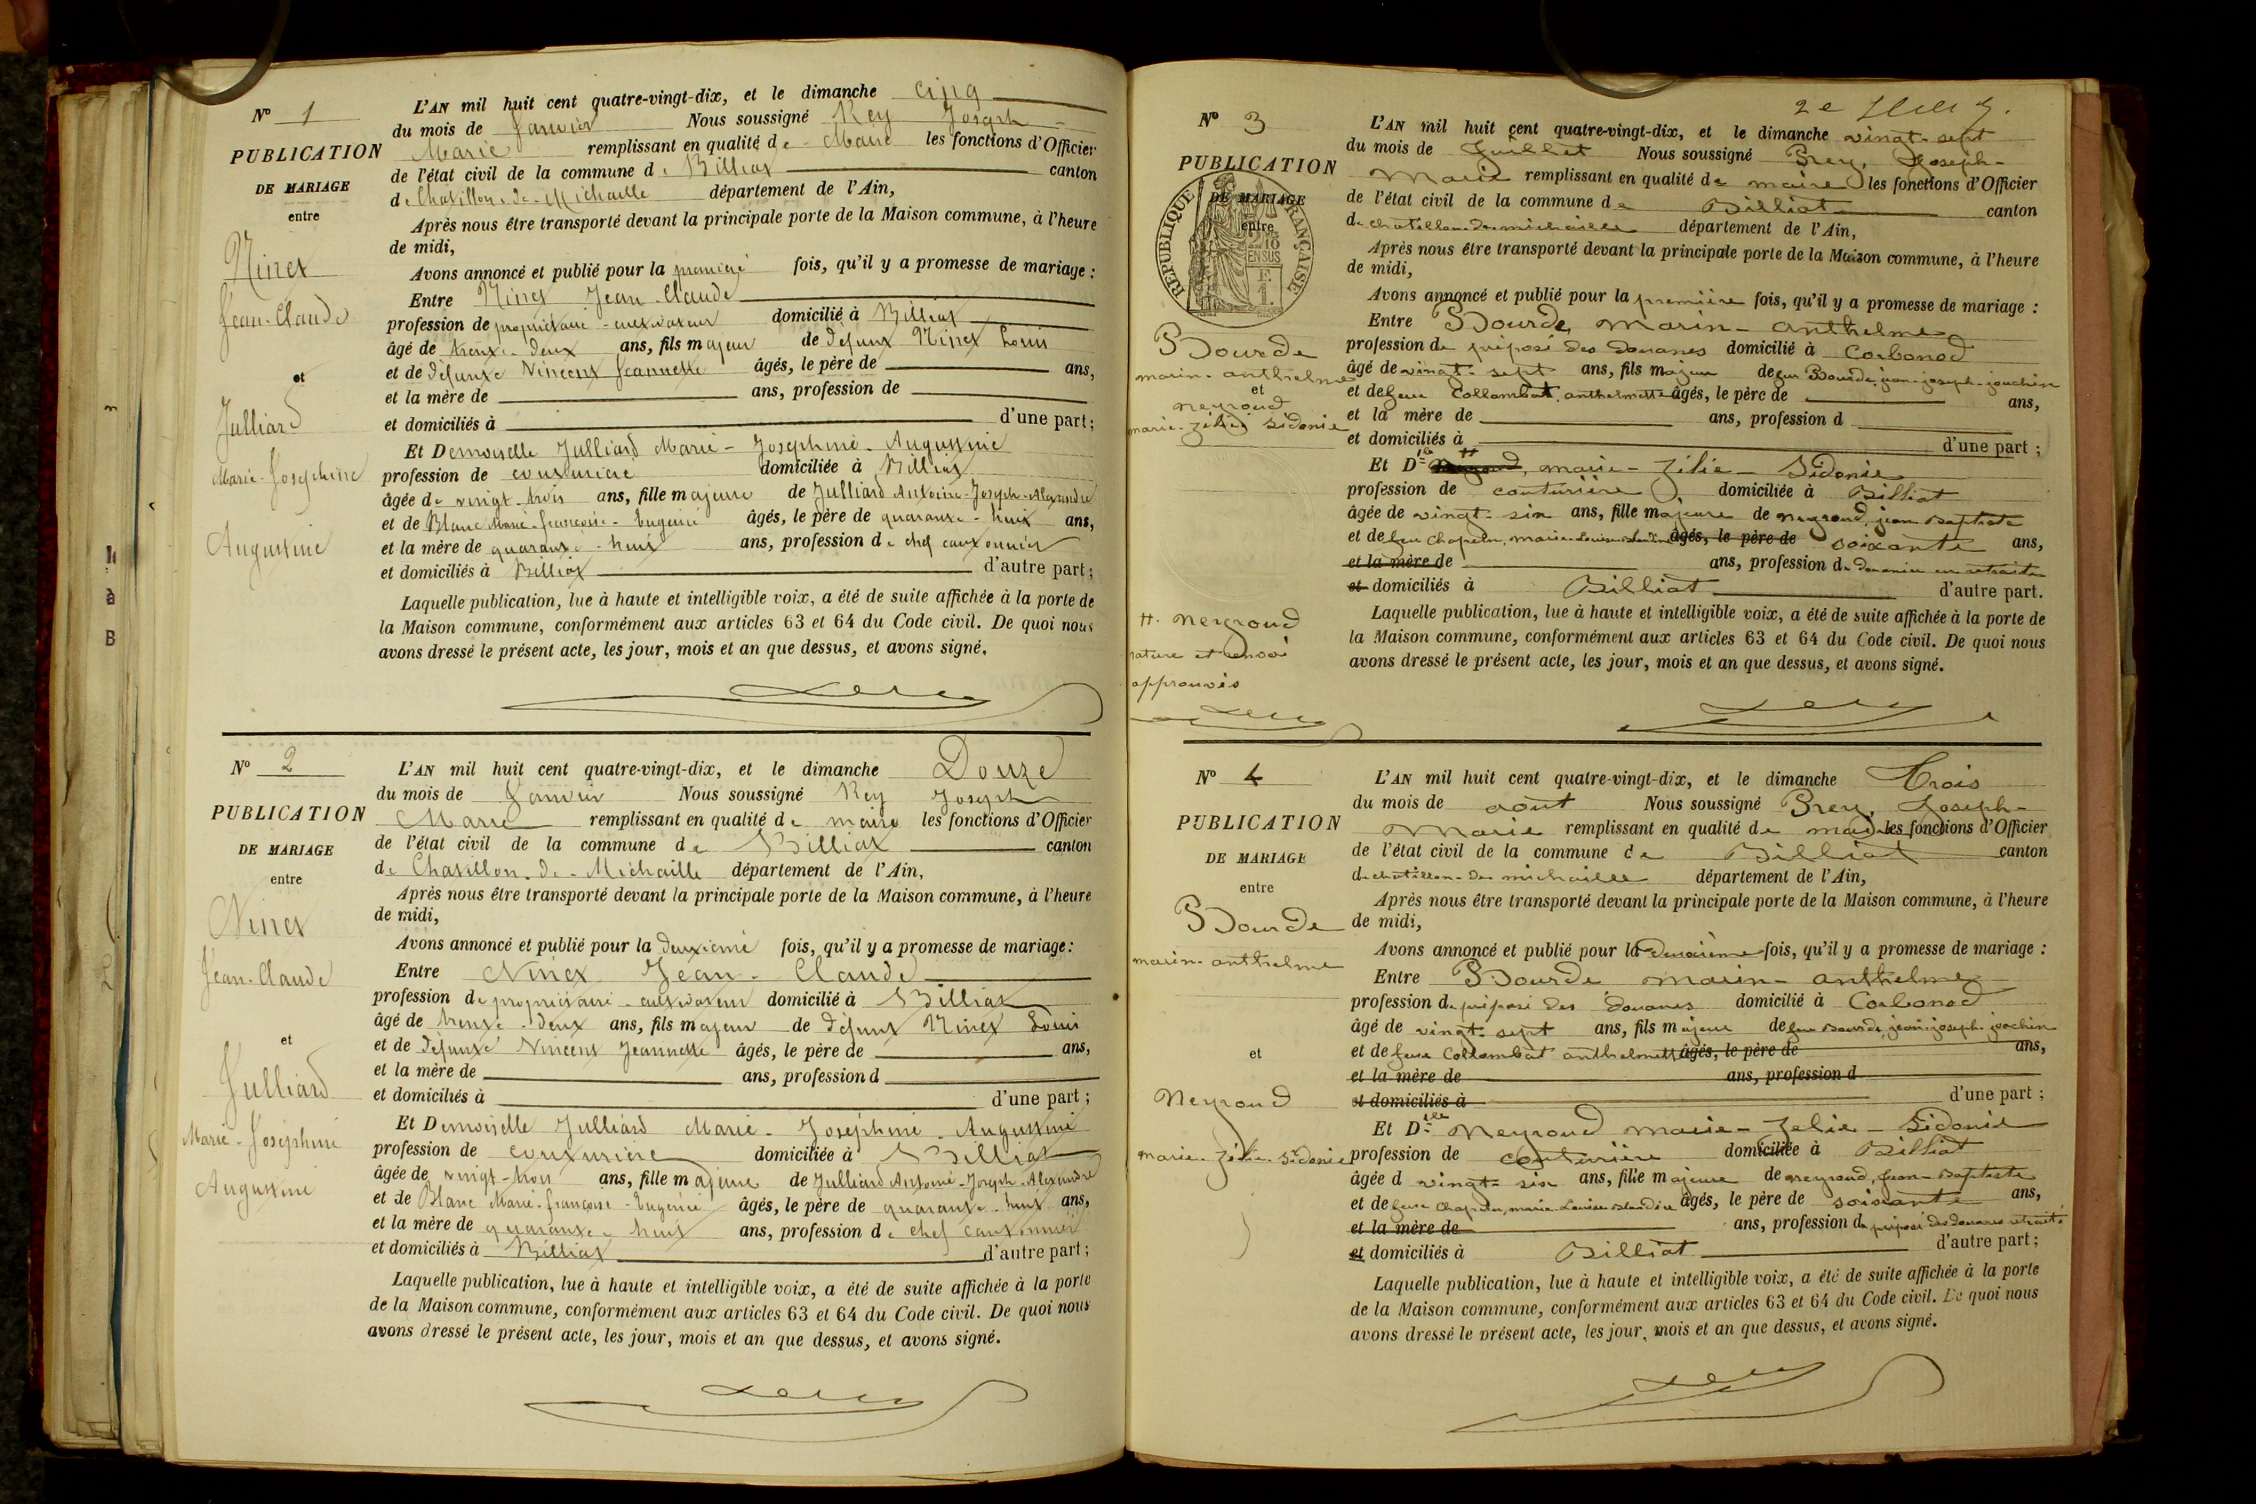 N° 1
PUBLICATION
DE MARIAGE
entre
Ninet
Jean-Claude
et
Julliard
Marie-Josephine
Augustine
L'AN mil huit cent quatre-vingt-dix, et le dimanche cinq
du mois de Janvier Nous soussigné Rey Joseph
Marie remplissant en qualité de Maire les fonctions d'Officier
de l'état civil de la commune de Billiat canton
de Chatillon-de-Michaille département de l'Ain,
Après nous être transporté devant la principale porte de la Maison commune, à l'heure
de midi,
Avons annoncé et publié pour la première fois, qu'il y a promesse de mariage :
Entre Ninet Jean-Claude
profession de propriétaire-cultivateur domicilié à Billiat
âgé de trente-deux ans, fils majeur de défunt Ninet Louis
et de défunte Vincent Jeannette âgés, le père de ans,
et la mère de ans, profession de
et domiciliés à d'une part;
Et Demoiselle Julliard Marie-Josephine-Augustine
profession de couturière domiciliée à Billiat
âgée de vingt-trois ans, fille majeure de Julliard Antoine-Joseph-Alexandre
et de Blanc Marie-françoise-Eugénie âgés, le père de quarante-huit ans,
et la mère de quarante-huit ans, profession de chef cantonnier
et domiciliés à Billiat d'autre part;
Laquelle publication, lue à haute et intelligible voix, a été de suite affichée à la porte de
la Maison commune, conformément aux articles 63 et 64 du Code civil. De quoi nous
avons dressé le présent acte, les jour, mois et an que dessus, et avons signé.
N° 2
PUBLICATION
DE MARIAGE
entre
Ninet
Jean-Claude
et
Julliard
Marie-Joséphine
Augustine
L'AN mil huit cent quatre-vingt-dix, et le dimanche Douze
du mois de Janvier Nous soussigné Rey Joseph
Marie remplissant en qualité de maire les fonctions d'Officier
de l'état civil de la commune de Billiat canton
de Chatillon-de-Michaille département de l'Ain,
Après nous être transporté devant la principale porte de la Maison commune, à l'heure
de midi,
Avons annoncé et publié pour la deuxième fois, qu'il y a promesse de mariage:
Entre Ninet Jean-Claude
profession de propriétaire-cultivateur domicilié à Billiat
âgé de trente-deux ans, fils majeur de défunt Ninet Louis
et de défunte Vincent Jeannette âgés, le père de ans,
et la mère de ans, profession d
et domiciliés à d'une part;
Et Demoiselle Julliard Marie-Joséphine-Augustine
profession de couturière domiciliée à Billiat
âgée de vingt-trois ans, fille majeure de Julliard Antoine-Joseph-Alexandre
et de Blanc Marie-françoise-Eugénie âgés, le père de quarante-huit ans,
et la mère de quarante-huit ans, profession de chef cantonnier
et domiciliés à Billiat d'autre part;
Laquelle publication, lue à haute et intelligible voix, a été de suite affichée à la porte
de la Maison commune, conformément aux articles 63 et 64 du Code civil. De quoi nous
avons dressé le présent acte, les jour, mois et an que dessus, et avons signé.
2e
N° 3
PUBLICATION
DE MARIAGE
entre
RÉPUBLIQUE FRANÇAISE
Bourde
marin-anthelme
et
neyroud
marie-zélie sidonie
H. neyroud
rature et renvoi
approuvés
L'AN mil huit cent quatre-vingt-dix, et le dimanche vingt-sept
du mois de Juillet Nous soussigné Rey, Joseph-
Marie remplissant en qualité de maire les fonctions d'Officier
de l'état civil de la commune de Billiat canton
de chatillon-de-michaille département de l'Ain,
Après nous être transporté devant la principale porte de la Maison commune, à l'heure
de midi,
Avons annoncé et publié pour la première fois, qu'il y a promesse de mariage :
Entre Bourde, marin-anthelme
profession de préposé des douanes domicilié à Corbonod
âgé de vingt-sept ans, fils majeur de feu Bourde, jean-joseph-joachim
et de feue Collombat, anthelmette âgés, le père de ans,
et la mère de ans, profession d
et domiciliés à d'une part;
Et Dlle H neyroud, marie-zélie-Sidonie
profession de couturière domiciliée à Billiat
âgée de vingt-six ans, fille majeure de neyroud, jean Baptiste
et de feu Chapelu, marie-Louise-blandine âgés, le père de soixante ans,
et la mère de ans, profession de douanier en retraite
et domiciliés à Billiat d'autre part.
Laquelle publication, lue à haute et intelligible voix, a été de suite affichée à la porte de
la Maison commune, conformément aux articles 63 et 64 du Code civil. De quoi nous
avons dressé le présent acte, les jour, mois et an que dessus, et avons signé.
N° 4
PUBLICATION
DE MARIAGE
entre
Bourde
marin-anthelme
et
Neyroud
marie-Zélie-Sidonie
L'AN mil huit cent quatre-vingt-dix, et le dimanche Trois
du mois de août Nous soussigné Rey, Joseph-
Marie remplissant en qualité de maire les fonctions d'Officier
de l'état civil de la commune de Billiat canton
de chatillon-de-michaille département de l'Ain,
Après nous être transporté devant la principale porte de la Maison commune, à l'heure
de midi,
Avons annoncé et publié pour la deuxième fois, qu'il y a promesse de mariage :
Entre Bourde marin-anthelme
profession de préposé des douanes domicilié à Corbonod
âgé de vingt-sept ans, fils majeur de feu Bourde, jean-joseph-joachim
et de feue Collombat anthelmette âgés, le père de ans,
et la mère de ans, profession d
et domiciliés à d'une part;
Et Dlle Neyroud marie-Zelie-Sidonie
profession de couturière domiciliée à Billiat
âgée d vingt-six ans, fille majeure de neyroud, Jean-Baptiste
et de feue Chapelu, marie-Louise-blandine âgés, le père de soixante ans,
et la mère de ans, profession de préposé des douanes retraité
et domiciliés à Billiat d'autre part;
Laquelle publication, lue à haute et intelligible voix, a été de suite affichée à la porte
de la Maison commune, conformément aux articles 63 et 64 du Code civil. De quoi nous
avons dressé le présent acte, les jour, mois et an que dessus, et avons signé.